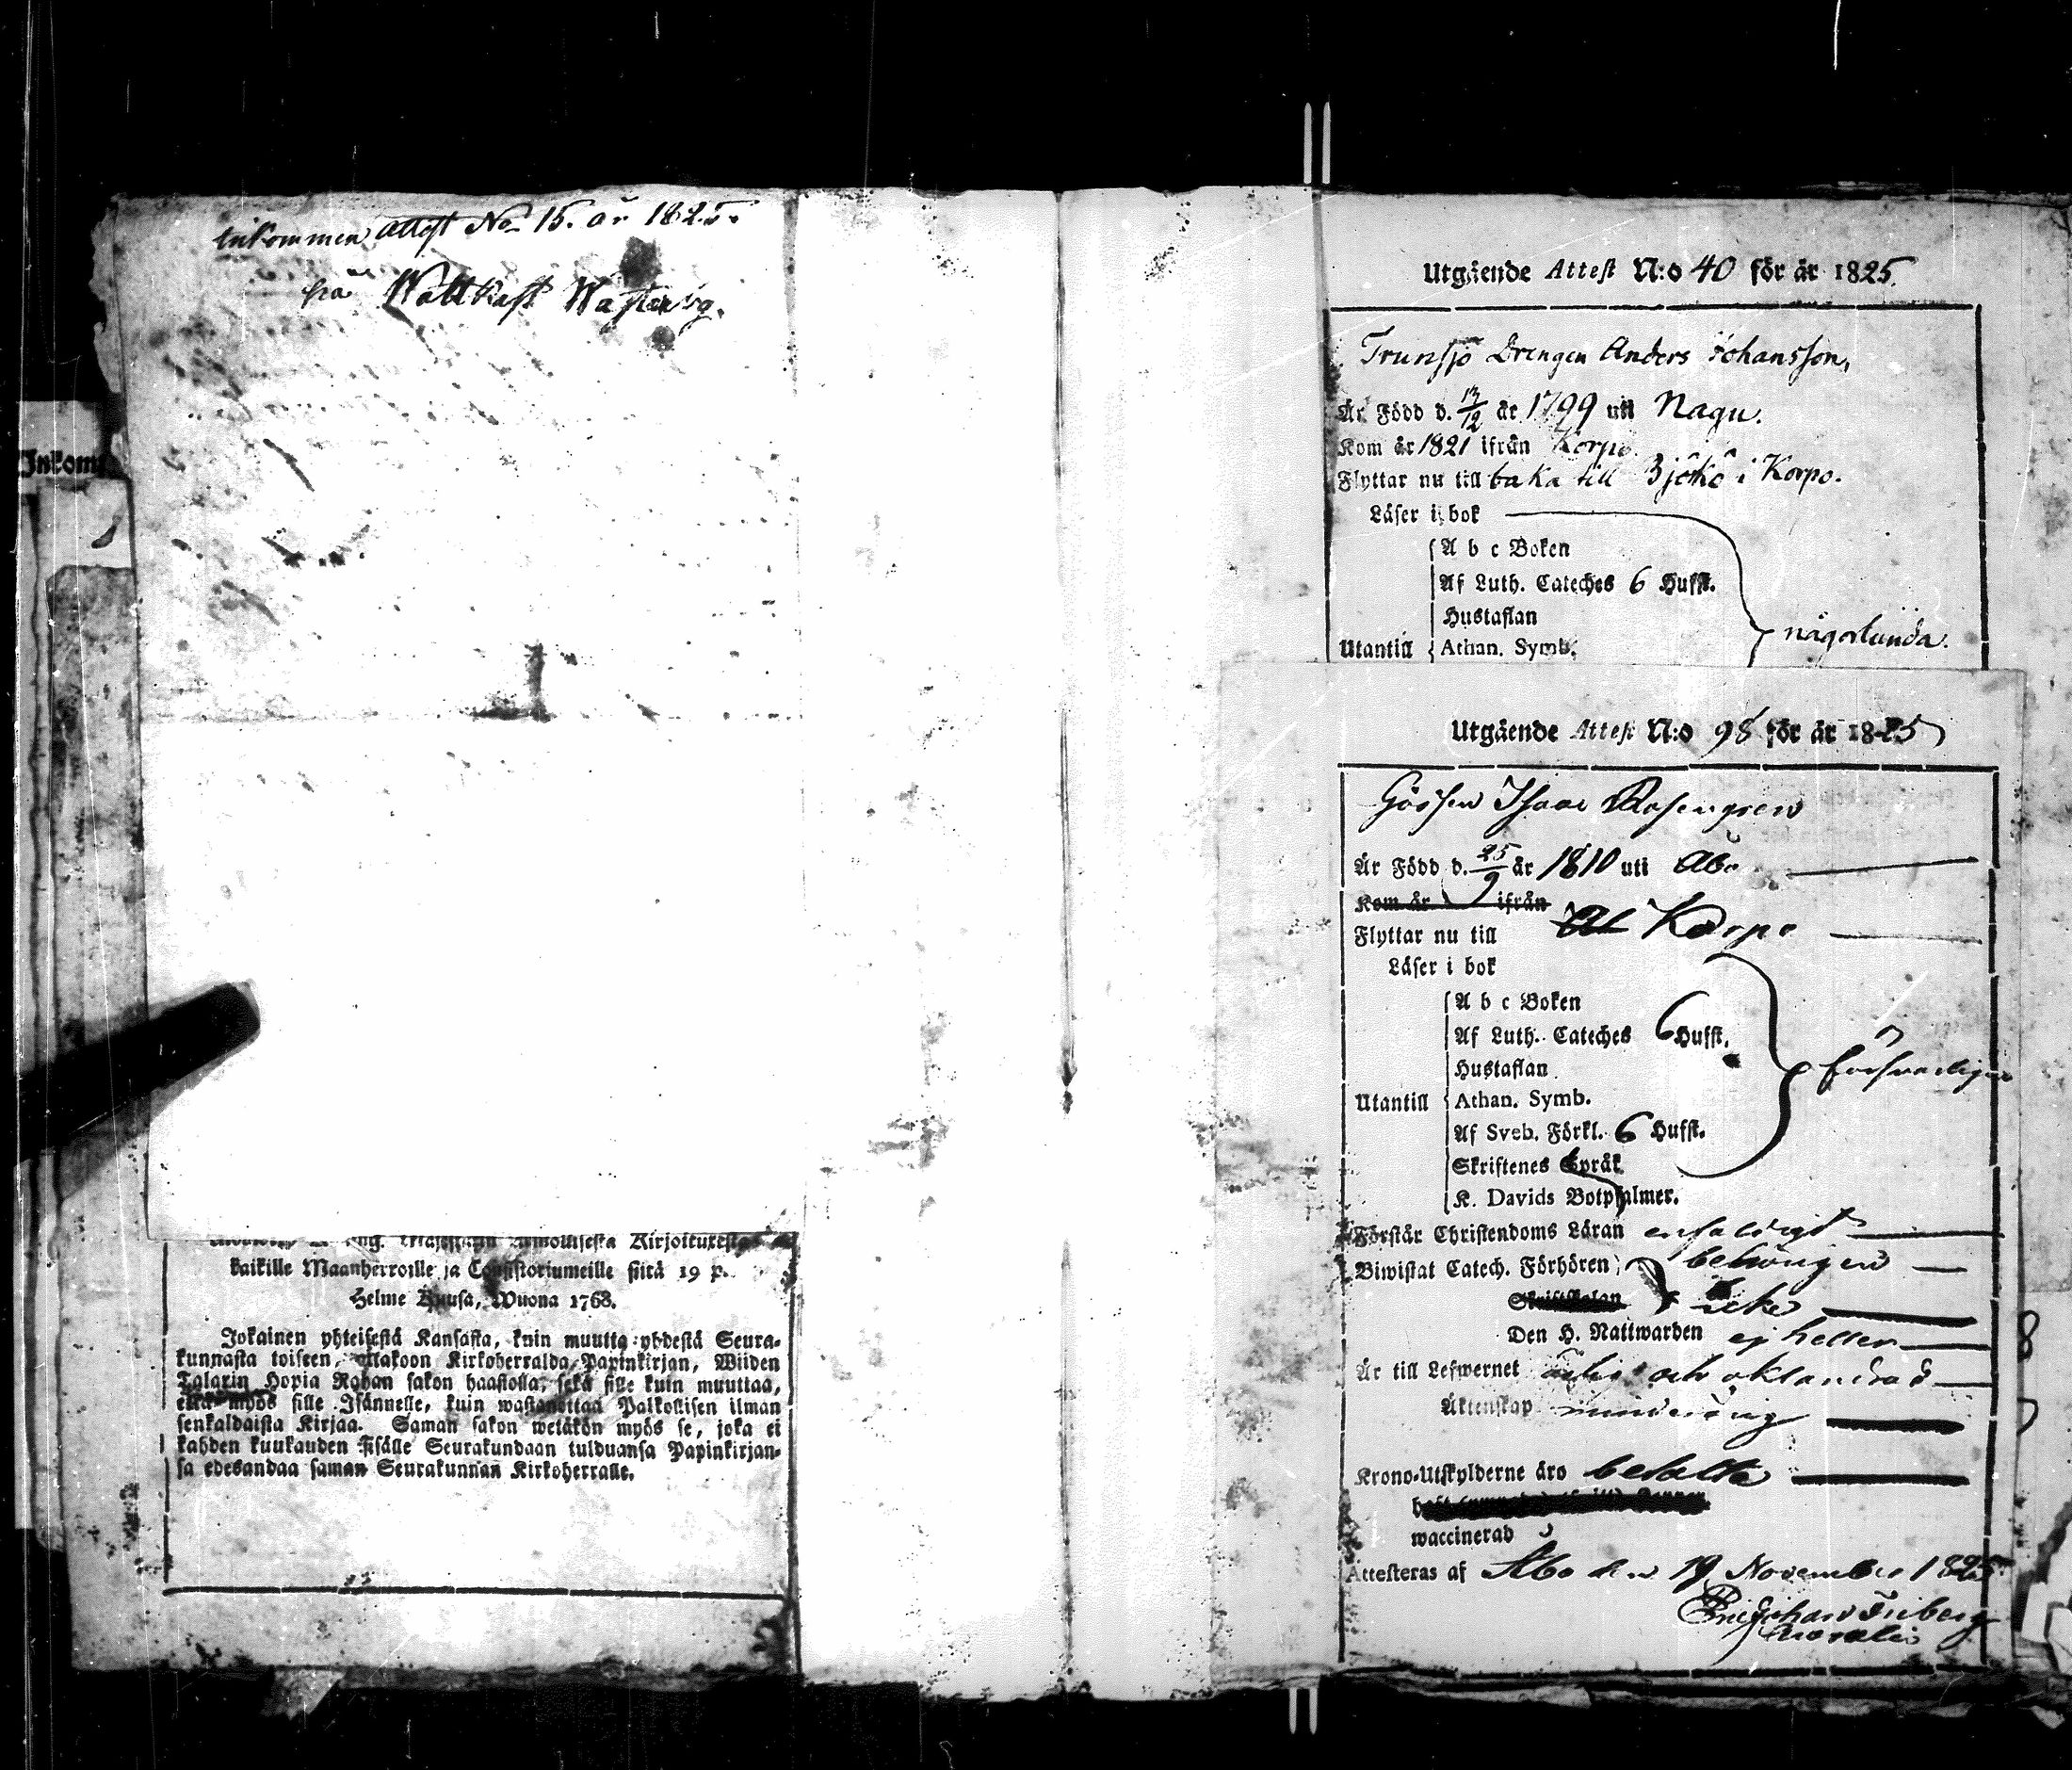 Inkommen Attest No 15. år 1825.
från Wattkast Wästerby.
Inkom
kaikille Maanherroille ja Consistoriumeille siitä 19 p.
Helme Kuusa, Wuona 1768.
Jokainen yhteisestä Kansasta, kuin muutta yhdestä Seura-
kunnasta toiseen, ottakoon Kirkoherralda Papinkirjan, Wiiden
Talarin Hopia Rahan sakon haastolla, sekä sille kuin muuttaa,
että myös sille Isännelle, kuin wastanottaa Palkollisen ilman
senkaldaista Kirjaa. Saman sakon wetäkön myös se, joka ei
kahden kuukauden sisälle Seurakundaan tulduansa Papinkirjan-
sa edesandaa saman Seurakunnan Kirkoherralle.
Utgående Attest N:o 40 för år 1825.
Drengen Anders Johansson,
Är Född d. 13/12 år 1799 uti Nagu.
Kom år 1821 ifrån Korpo.
Flyttar nu till baka till Björkö i Korpo.
Läser i bok
A b c Boken
Af Luth. Cateches 6 Hufst.
Hustaflan
Utantill Athan. Symb.
någorlunda.
Utgående Attest N:o 98 för år 1825
Gossen Isaac Rosengren
Är Född d. 25/9 år 1810 uti Åbo
Kom år ifrån
Flyttar nu till Korpo
Läser i bok
A b c Boken
Af Luth. Cateches 6 Hufst.
Hustaflan
Utantill Athan. Symb.
Af Sveb. Förkl. 6 Hufst.
Skriftenes Språk
K. Davids Botpsalmer.
försvarligen
Förstår Christendoms Läran enfaldigt
Biwistat Catech. Förhören behörigen
Skriftskolan icke
Den H. Nattwarden ej heller
Är till Lefwernet ärlig och oklandrad
Äktenskap minderårig
Krono-Utskylderne äro betalte
waccinerad
Attesteras af Åbo den 19 November 1825